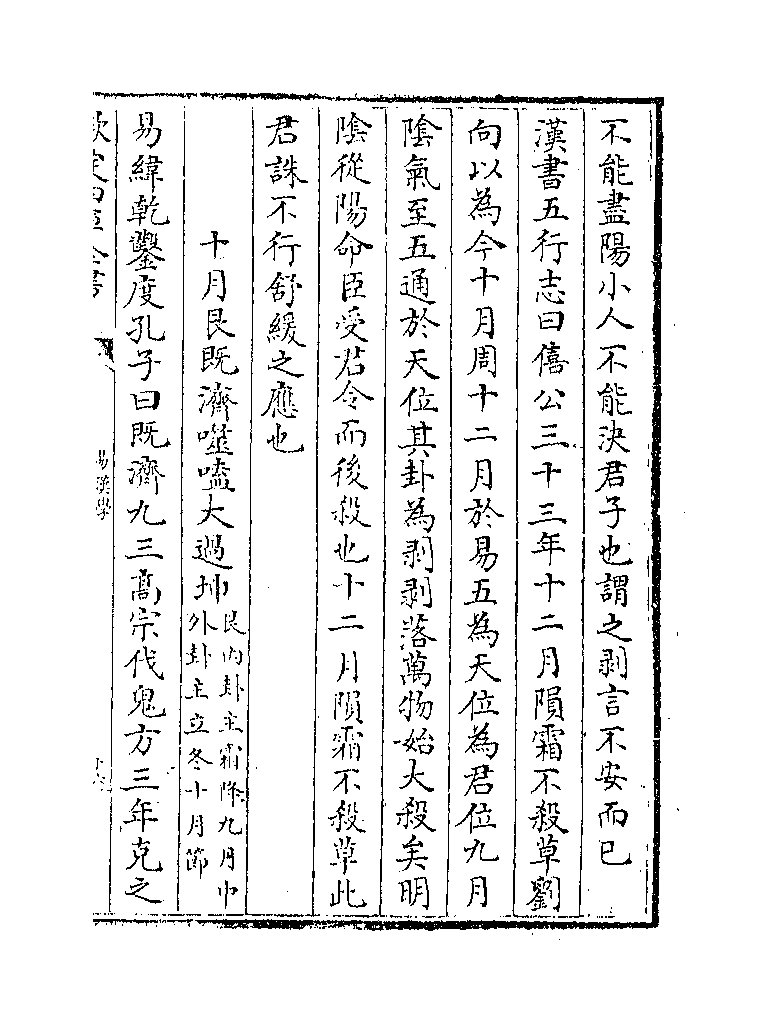 不能盡陽小人不能決君子也謂之剥言不安而已
漢書五行志曰僖公三十三年十二月隕霜不殺草劉
向以為今十月周十二月於易五為天位為君位九月
陰氣至五通於天位其卦為剥剥落萬物始大殺矣明
陰從陽命臣受君令而後殺也十二月隕霜不殺草此
君誅不行舒緩之應也
十月艮既濟噬嗑大過坤
艮内卦主霜降九月中
外卦主立冬十月節
易緯乾鑿度孔子曰既濟九三髙宗伐鬼方三年克之
欽定四庫全書
易漢學
十六